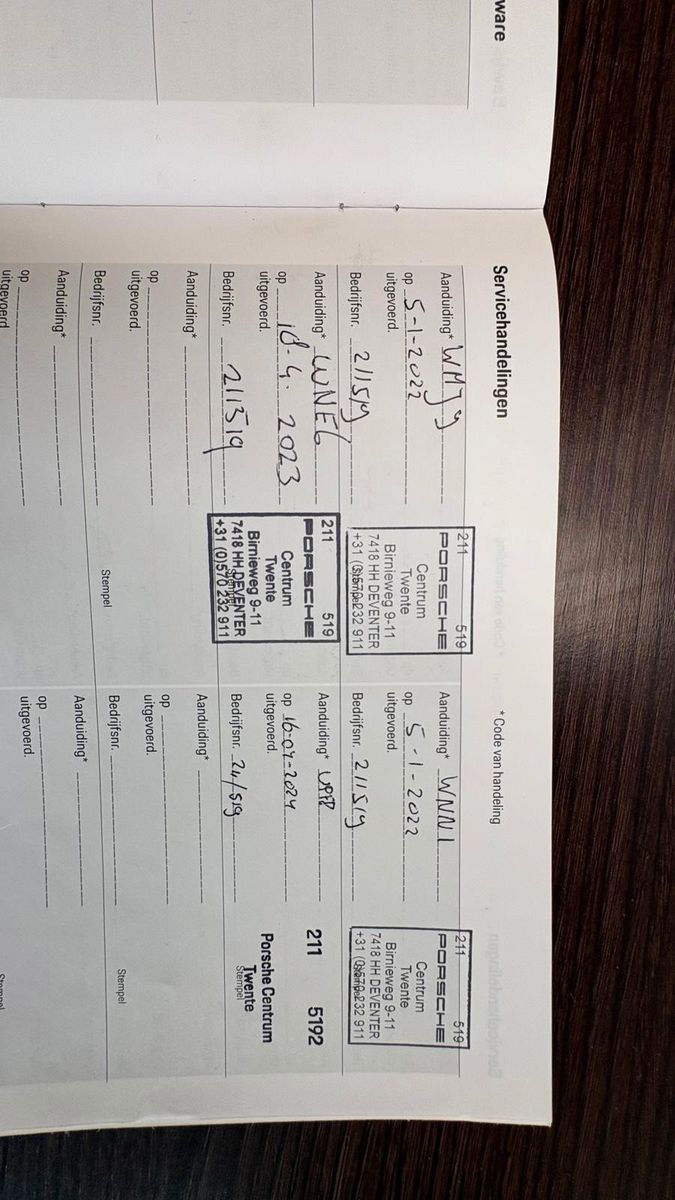 ware
Servicehandelingen
* Code van handeling
Aanduiding* WMJ9
op 5-1-2022
uitgevoerd.
Bedrijfsnr. 211519
211 519
PORSCHE
Centrum
Twente
Birnieweg 9-11
7418 HH DEVENTER
+31 (0)570 232 911
Stempel
Aanduiding* WNN1
op 5-1-2022
uitgevoerd.
Bedrijfsnr. 211519
211 519
PORSCHE
Centrum
Twente
Birnieweg 9-11
7418 HH DEVENTER
+31 (0)570 232 911
Stempel
Aanduiding* WNE6
op 18-4-2023
uitgevoerd.
Bedrijfsnr. 211519
211 519
PORSCHE
Centrum
Twente
Birnieweg 9-11
7418 HH DEVENTER
+31 (0)570 232 911
Stempel
Aanduiding*
op 16-04-2024
uitgevoerd.
Bedrijfsnr.
211 5192
Porsche Centrum
Twente
Stempel
Aanduiding*
op
uitgevoerd.
Bedrijfsnr.
Stempel
Aanduiding*
op
uitgevoerd.
Bedrijfsnr.
Stempel
Aanduiding*
op
uitgevoerd
Aanduiding*
op
uitgevoerd.
Stempel